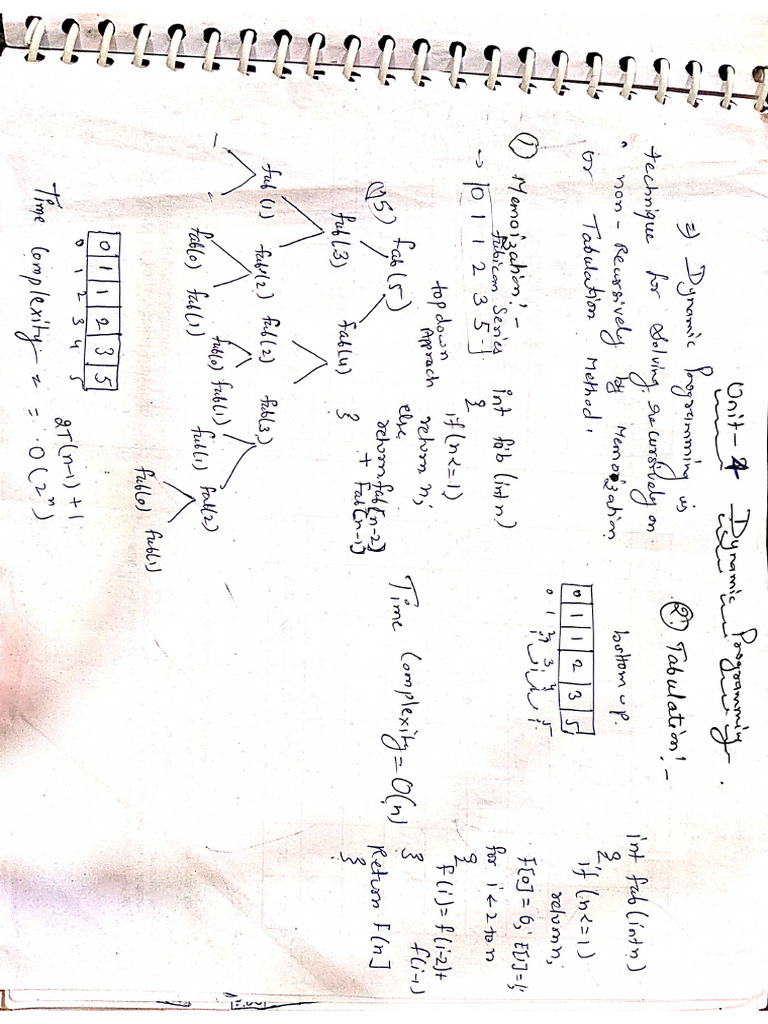 Unit-4 Dynamic Programming.
=) Dynamic Programming is
technique for solving recursively on
non-Recursively by Memozation
or Tabulation Method.
① Memoization:-
fubicon Series
→ 0 1 1 2 3 5 -
int fib (int n)
{
if (n<=1)
return n;
else
return fab[n-2]
+ fab[n-1]
}
top down
Apprach
(45) fab(5)
fub(3) fub(4)
fub(1) fub(2) fub(2) fub(3)
fab(0) fub(1) fub(0) fub(1) fub(1) fub(2)
fub(0) fub(1)
0 1 1 2 3 5
0 1 2 3 4 5
Time Complexity = 2T(n-1)+1
= O(2ⁿ)
② Tabulation:-
bottom up.
0 1 1 2 3 5
0 1 2 3 4 5
Time Complexity = O(n)
int fab(int n)
{
if (n<=1)
return n;
F[0] = 0; F[1]=1;
for i ← 2 to n
{
f(i) = f(i-2)+
f(i-1)
}
Return F[n]
}